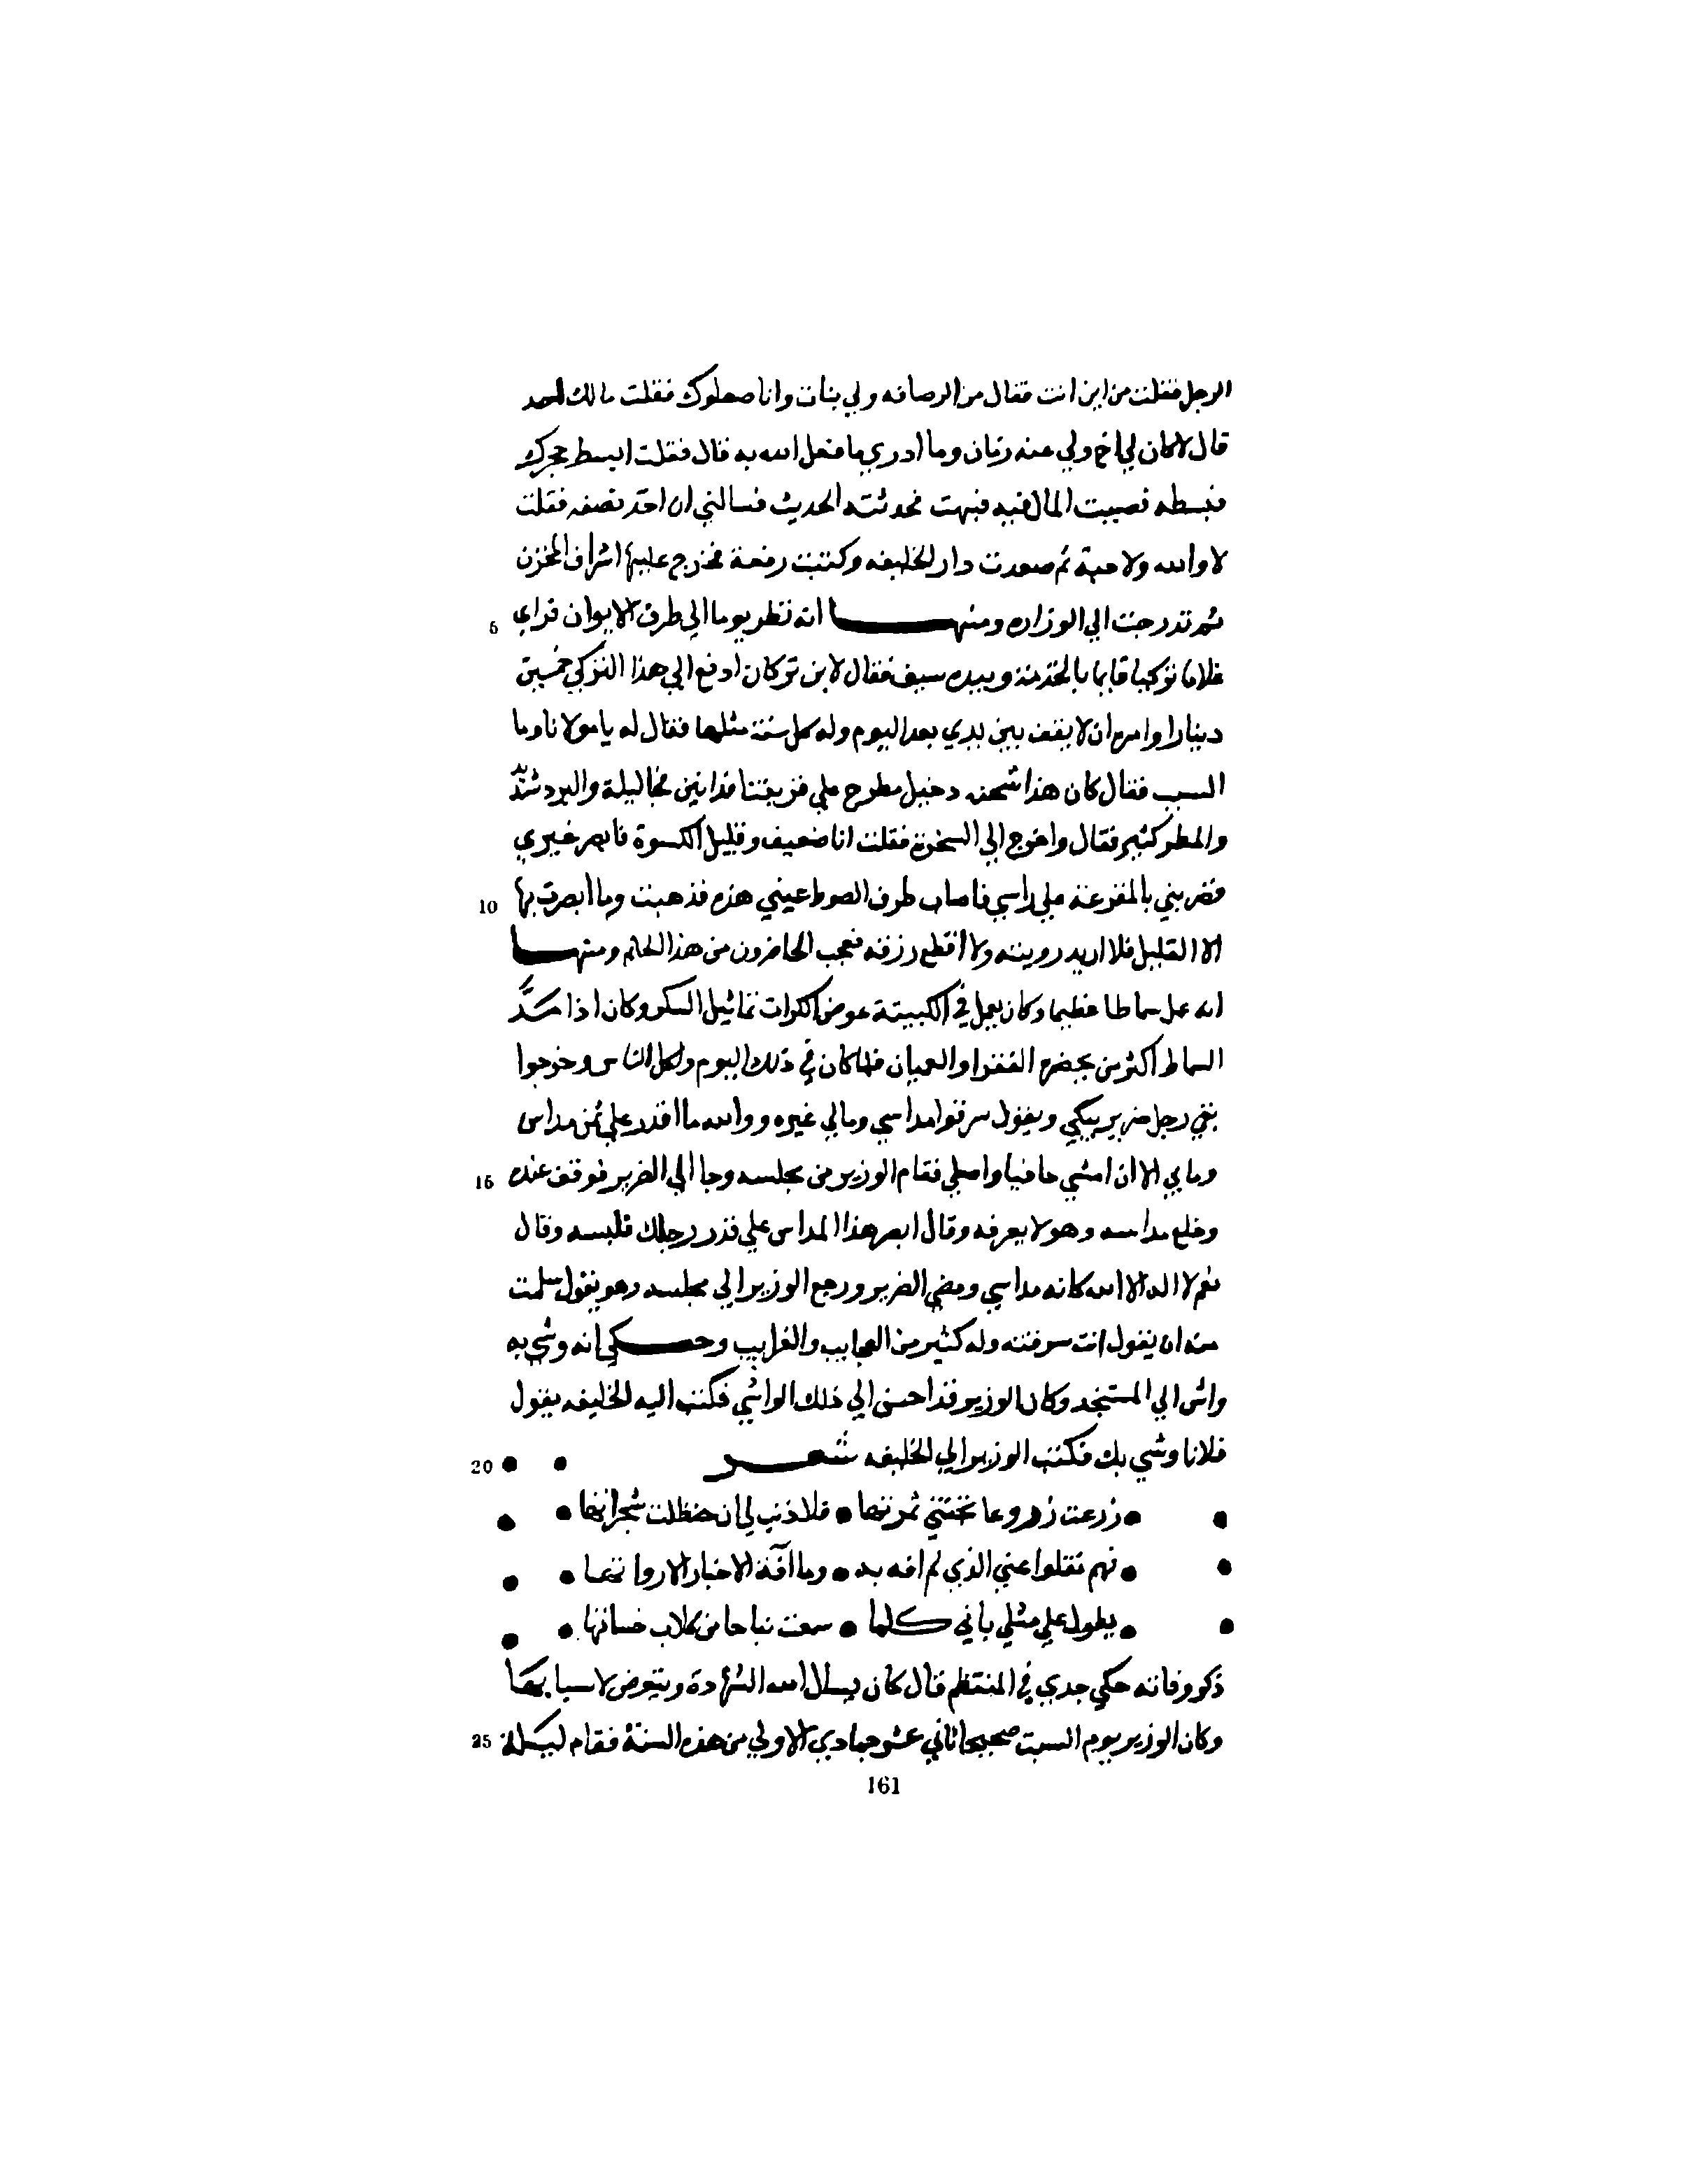 الرجل فقلت من اين انت فقال من الرصافه ولي بنات وانا صعلوك فقلت مالك احد
قال لا كان لي اخ ولي عنه زمان وما ادري ما فعل الله به قال فقلت ابسط حجرك
فبسطه فصببت المال فيه فبهت فحدثته الحديث فسالني ان اخذ نصفه فقلت
لا والله ولا حبة ثم صعدت دار الخليفه وكتبت رقعة فخرج عليها اشراف المخزن
ثم تدرجت الي الوزاره ومنهـــا انه نظر يوما الي طرف الايوان فراي
5
غلاما تركيا قايما بالخدمة وبيده سيف فقال لابن تركان ادفع الي هذا التركي خمسين
دينارا وامره ان لا يقف بين يدي بعد اليوم وله كل سنة مثلها فقال له يا مولانا وما
السبب فقال كان هذا شحنه دجيل مطرح علي قريتنا فجا ليلة والبرد شديد
والمطر كثير فقال واخرج الي السخرة فقلت انا ضعيف وقليل الكسوة فابصر غيري
فضربني بالمقرعة علي راسي فاصاب طرف الصوط عيني هذه فذهبت وما ابصرت بها
10
الا القليل فلا اريد رويته ولا اقطع رزقه فعجب الحاضرون من هذا الحلم ومنهـــا
انه عمل سماطا عظيما وكان يعمل في الكبيتة عوض الكرات تماثيل السكر وكان اذا مد
السماط اكثر من يحضره الفقرا والعميان فلما كان في ذلك اليوم واكل الناس وخرجوا
بقي رجل ضرير يبكي ويقول سرقوا مداسي ومالي غيره ووالله ما اقدر علي ثمن مداس
وما بي الا ان امشي حافيا واصلي فقام الوزير من مجلسه وجا الي الضرير فوقف عنده
15
وخلع مداسه وهو لا يعرفه وقال ابصر هذا المداس علي قدر رجلك فلبسه وقال
نعم لا اله الا الله كانه مداسي ومضي الضرير ورجع الوزير الي مجلسه وهو يقول سلمت
منه ان يقول انت سرقته وله كثير من العجايب والغرايب وحـــكي انه وشي به
واش الي المستنجد وكان الوزير قد احسن الي ذلك الواشي فكتب اليه الخليفه يقول
فلانا وشي بك فكتب الوزير الي الخليفه شعـــر
20
زرعت زروعا تخنني ثمرتها • فلا ذنب لي ان حنظلت شجراتها
نهم نقلوا عني الذي لم افه به • وما آفة الاخبار الا رواتها
يطول علي مثلي باني كلما • سمعت نباحا من كلاب خساتها
ذكر وفاته حكي جدي في المنتظم قال كان يسال الله الشهادة ويتعرض لاسبابها
وكان الوزير يوم السبت صحيحا ثاني عشر جمادي الاولي من هذه السنة فقام ليلة
25
161